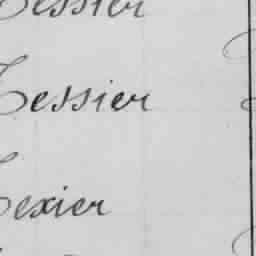 Tessier
Tessier
Texier